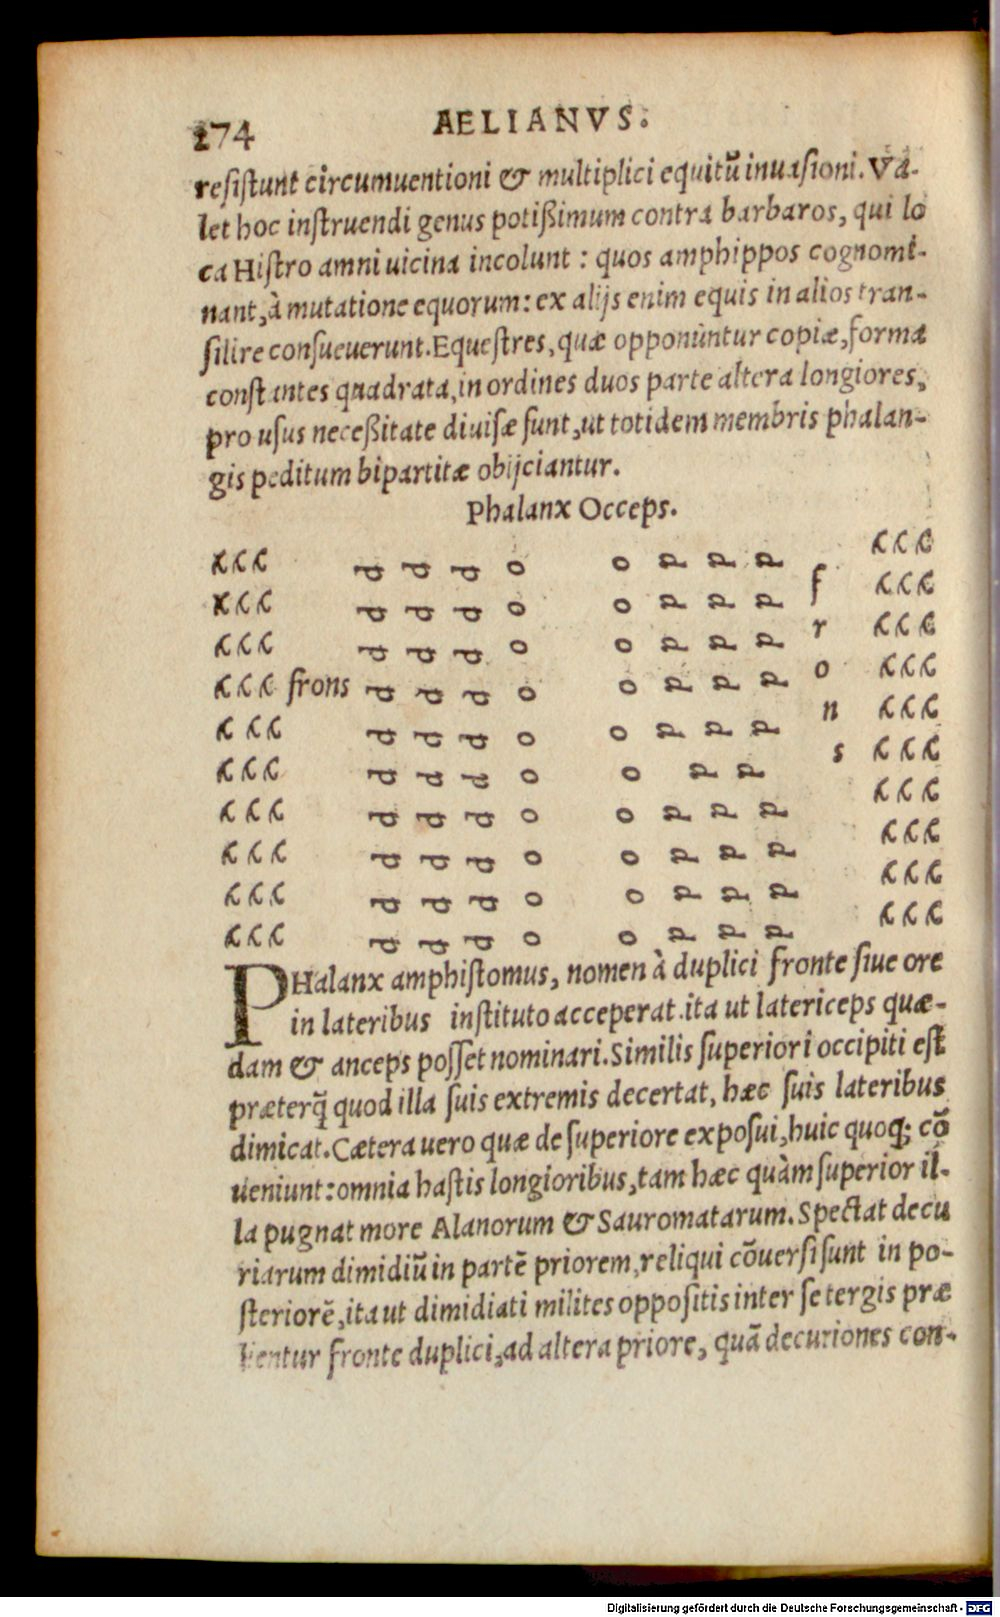 274 AELIANVS.
resiſtunt circumuentioni & multiplici equitū inuaſioni. Va-
let hoc inſtruendi genus potißimum contra barbaros, qui lo
ca Hiſtro amni uicina incolunt : quos amphippos cognomi-
nant, à mutatione equorum: ex alijs enim equis in alios tran-
ſilire conſueuerunt. Equeſtres, quæ opponuntur copiæ, forma
conſtantes quadrata, in ordines duos parte altera longiores,
pro uſus neceßitate diuiſæ ſunt, ut totidem membris phalan-
gis peditum bipartitæ obijciantur.
Phalanx Occeps.
frons
f
r
o
n
s
PHalanx amphiſtomus, nomen à duplici fronte ſiue ore
in lateribus inſtituto acceperat. ita ut latericeps quæ-
dam & anceps poſſet nominari. Similis ſuperiori occipiti eſt
præterq̃ quod illa ſuis extremis decertat, hæc ſuis lateribus
dimicat. Cætera uero quæ de ſuperiore expoſui, huic quoq; cō
ueniunt: omnia haſtis longioribus, tam hæc quàm ſuperior il-
la pugnat more Alanorum & Sauromatarum. Spectat decu
riarum dimidiū in partē priorem, reliqui cōuerſi ſunt in po-
ſteriorē, ita ut dimidiati milites oppoſitis inter ſe tergis præ
beantur fronte duplici, ad altera priore, quā decuriones con-
Digitalisierung gefördert durch die Deutsche Forschungsgemeinschaft - DFG